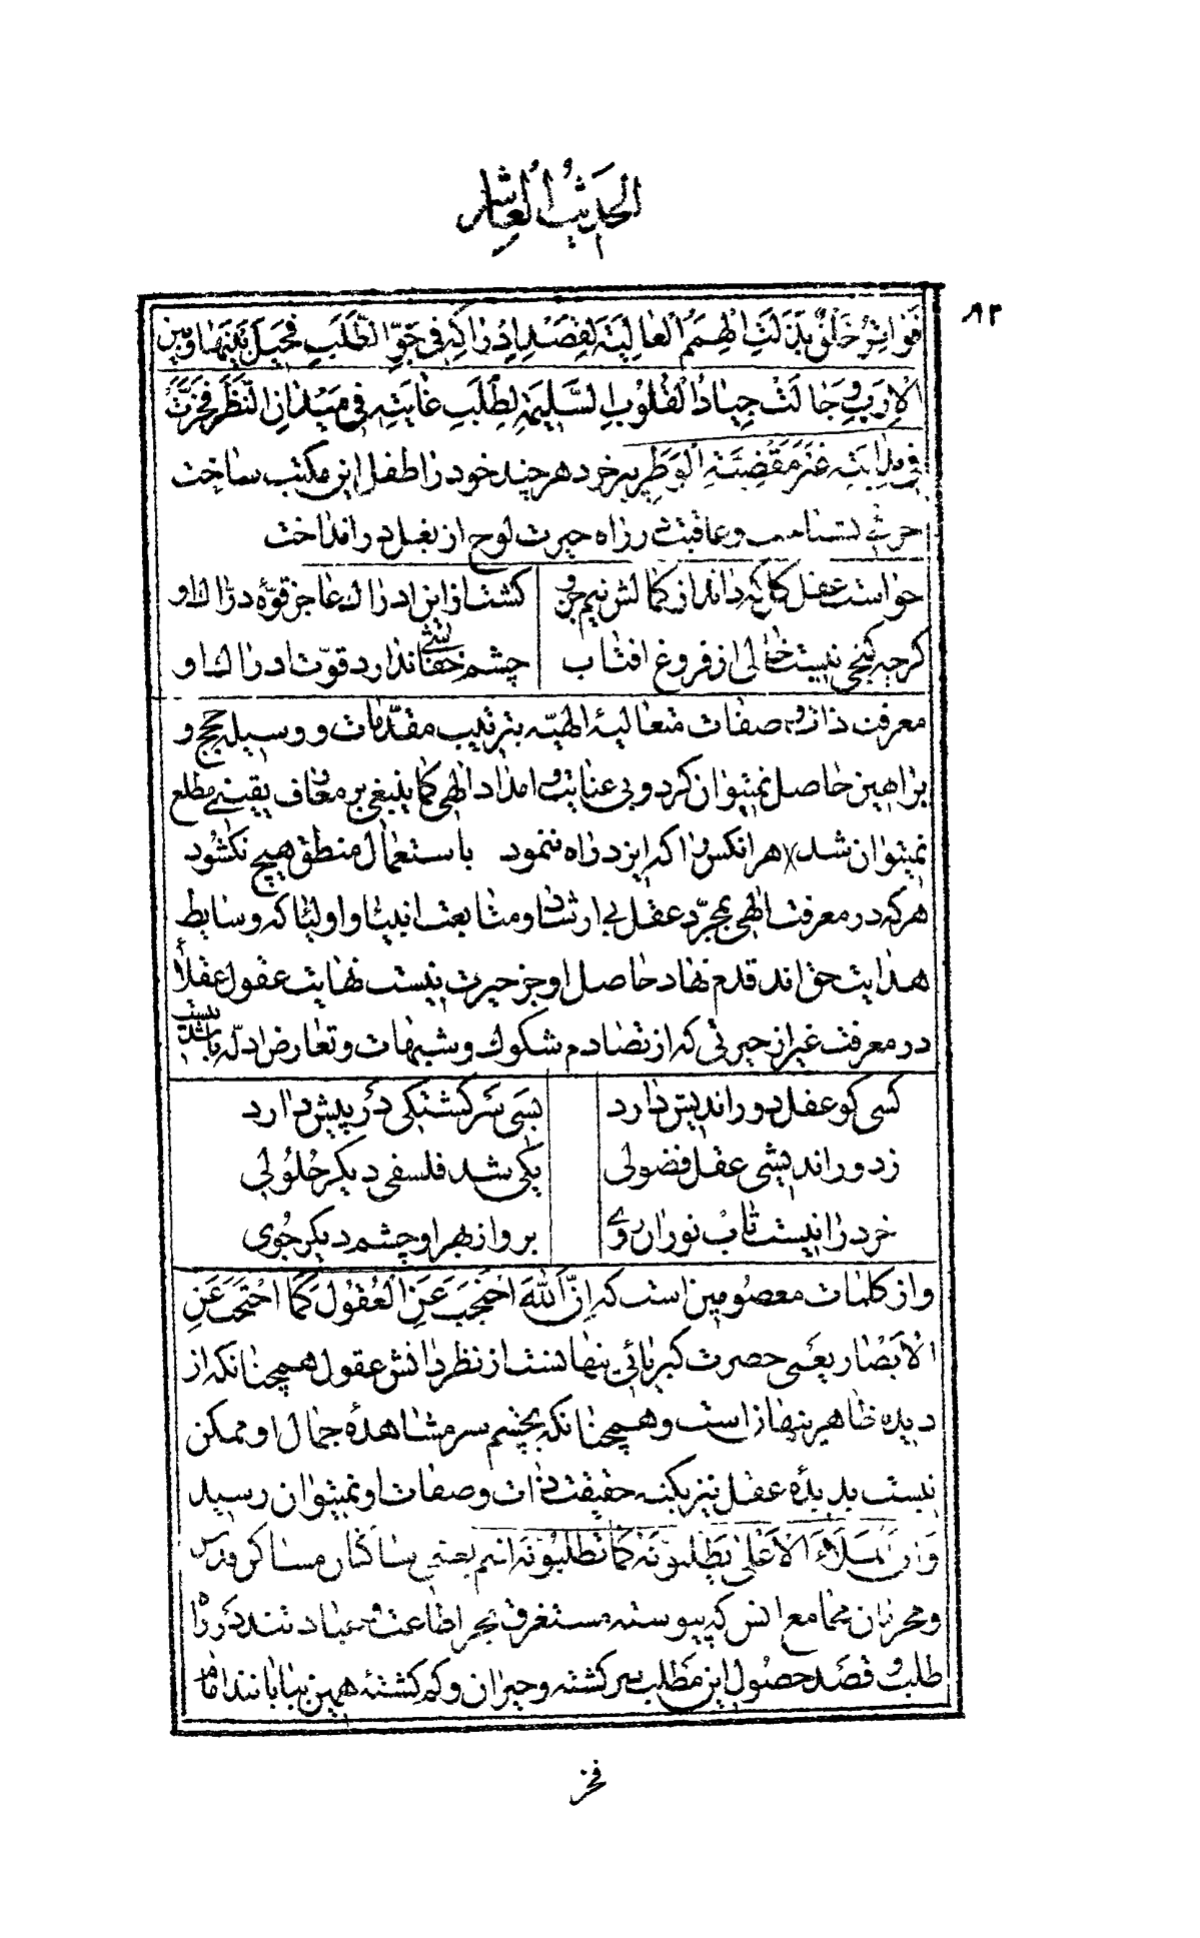 الحدیثُ العاشِر
٨٢
بَذَلَتِ الْهِمَمُ الْعالِیَةُ لِقَصْدِ اِدْراکِهِ فی جَوِّ الطَّلَبِ فَحیلَ بَیْنَهٰا وبین
الْاِرَبِ وَجٰالَتْ جِیٰادُ الْقُلُوبِ السَّلیمَةِ لِطَلَبِ غٰایَتِهِ فی مَیْدٰانِ النَّظَرِ فَخَرَّتْ
فی بِدٰایَتِهِ غَیْرَ مَقْضِیَّةِ الْوَطَرِ پیر خرد هر چند خود را طفل این مکتب ساخت
حرفی نشناخت وعاقبت در راه حیرت لوح از بغل در انداخت
خواست عقل کل که داند از کمالش نیم جزو
کشت از این ادراک عاجز قوّهٔ درّاک او
کرچه کنجی نیست خالی از فروغ افتاب
چشم خفاشی ندارد قوّت ادراک او
معرفت ذات و صفات متعالیهٔ الهیّه بترتیب مقدّمات و وسیله حجج و
براهین حاصل نمیتوان کرد و بی عنایت و امداد الهی کما ینبغی بر معارف یقینی مطلع
نمیتوان شد هر انکس را که ایزد راه ننمود باستعمال منطق هیچ نکشود
هر که در معرفت الهی بمجرّد عقل بی ارشاد و متابعت انبیا و اولیا که وسایط
هدایت حق اند قدم نهاد حاصل او جز حیرت نیست نهایت عقول عقلا
در معرفت غیر از حیرتی که از تصادم شکوک و شبهات و تعارض ادلّه باشد نیست
کسی کو عقل دور اندیش دارد
بسی سَرکشتکی در پیش دارد
ز دور اندیشی عقل فضولی
یکی شد فلسفی دیکر حُلُولی
خرد را نیست تاب نور ان روی
برو از بهر او چشم دیکر جُوی
و از کلمات معصومین است که اِنَّ اللّٰهَ احْتَجَبَ عَنِ الْعُقُولِ کَمَا احْتَجَبَ عَنِ
الْاَبْصٰارِ یعنی حضرت کبریائی پنهانست از نظر دانش عقول همچنانکه از
دیده ظاهر پنهان است و همچنانکه بچشم سر مشاهدهٔ جمال او ممکن
نیست بدیدهٔ عقل نیز بکنه حقیقت ذات و صفات او نمیتوان رسید
وَاِنَّ الْمَلَاءَ الْاَعْلٰی یَطْلُبُونَهُ کَمٰا تَطْلُبُونَهُ انتم یعنی ساکنان مساکن قدس
و محرمان مجامع انس که پیوسته مستغرق بحر اطاعت و عبادتند در راه
طلب و قصد حصول این مطلب سرکشته و حیران و کم کشتهٔ همین بیابانند اما
فخر